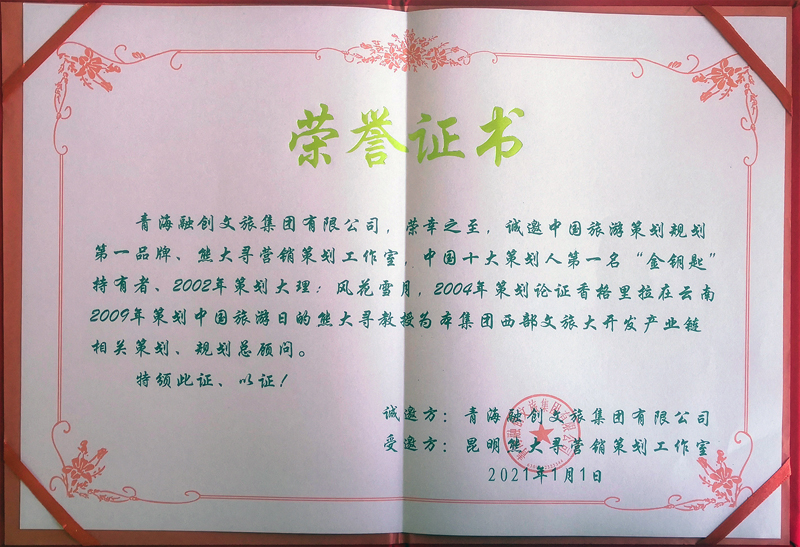 荣誉证书
青海融创文旅集团有限公司，荣幸之至，诚邀中国旅游策划规划
第一品牌、熊大寻营销策划工作室，中国十大策划人第一名“金钥匙”
持有者、2002年策划大理：风花雪月，2004年策划论证香格里拉在云南
2009年策划中国旅游日的熊大寻教授为本集团西部文旅大开发产业链
相关策划、规划总顾问。
特颁此证、以证！
诚邀方：青海融创文旅集团有限公司
受邀方：昆明熊大寻营销策划工作室
2021年1月1日